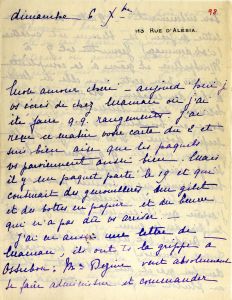 98
dimanche 6 Xbre
113 RUE D'ALÉSIA.
mon amour chéri — aujourd'hui je
vs écris de chez Maman où j'ai
été faire q.q. rangements. J'ai
reçu ce matin votre carte du 2 et
suis bien aise que les paquets
vs parviennent aussi bien. Mais
il y a un paquet parti le 19 et qui
contenait des genouillères, un gilet
et des bottes en papier et du beurre
qui n'a pas dû vs arriver.
J'ai eu aussi une lettre de
Maman; ils ont ts la grippe à
Mme veut absolument
se faire administrer et commander